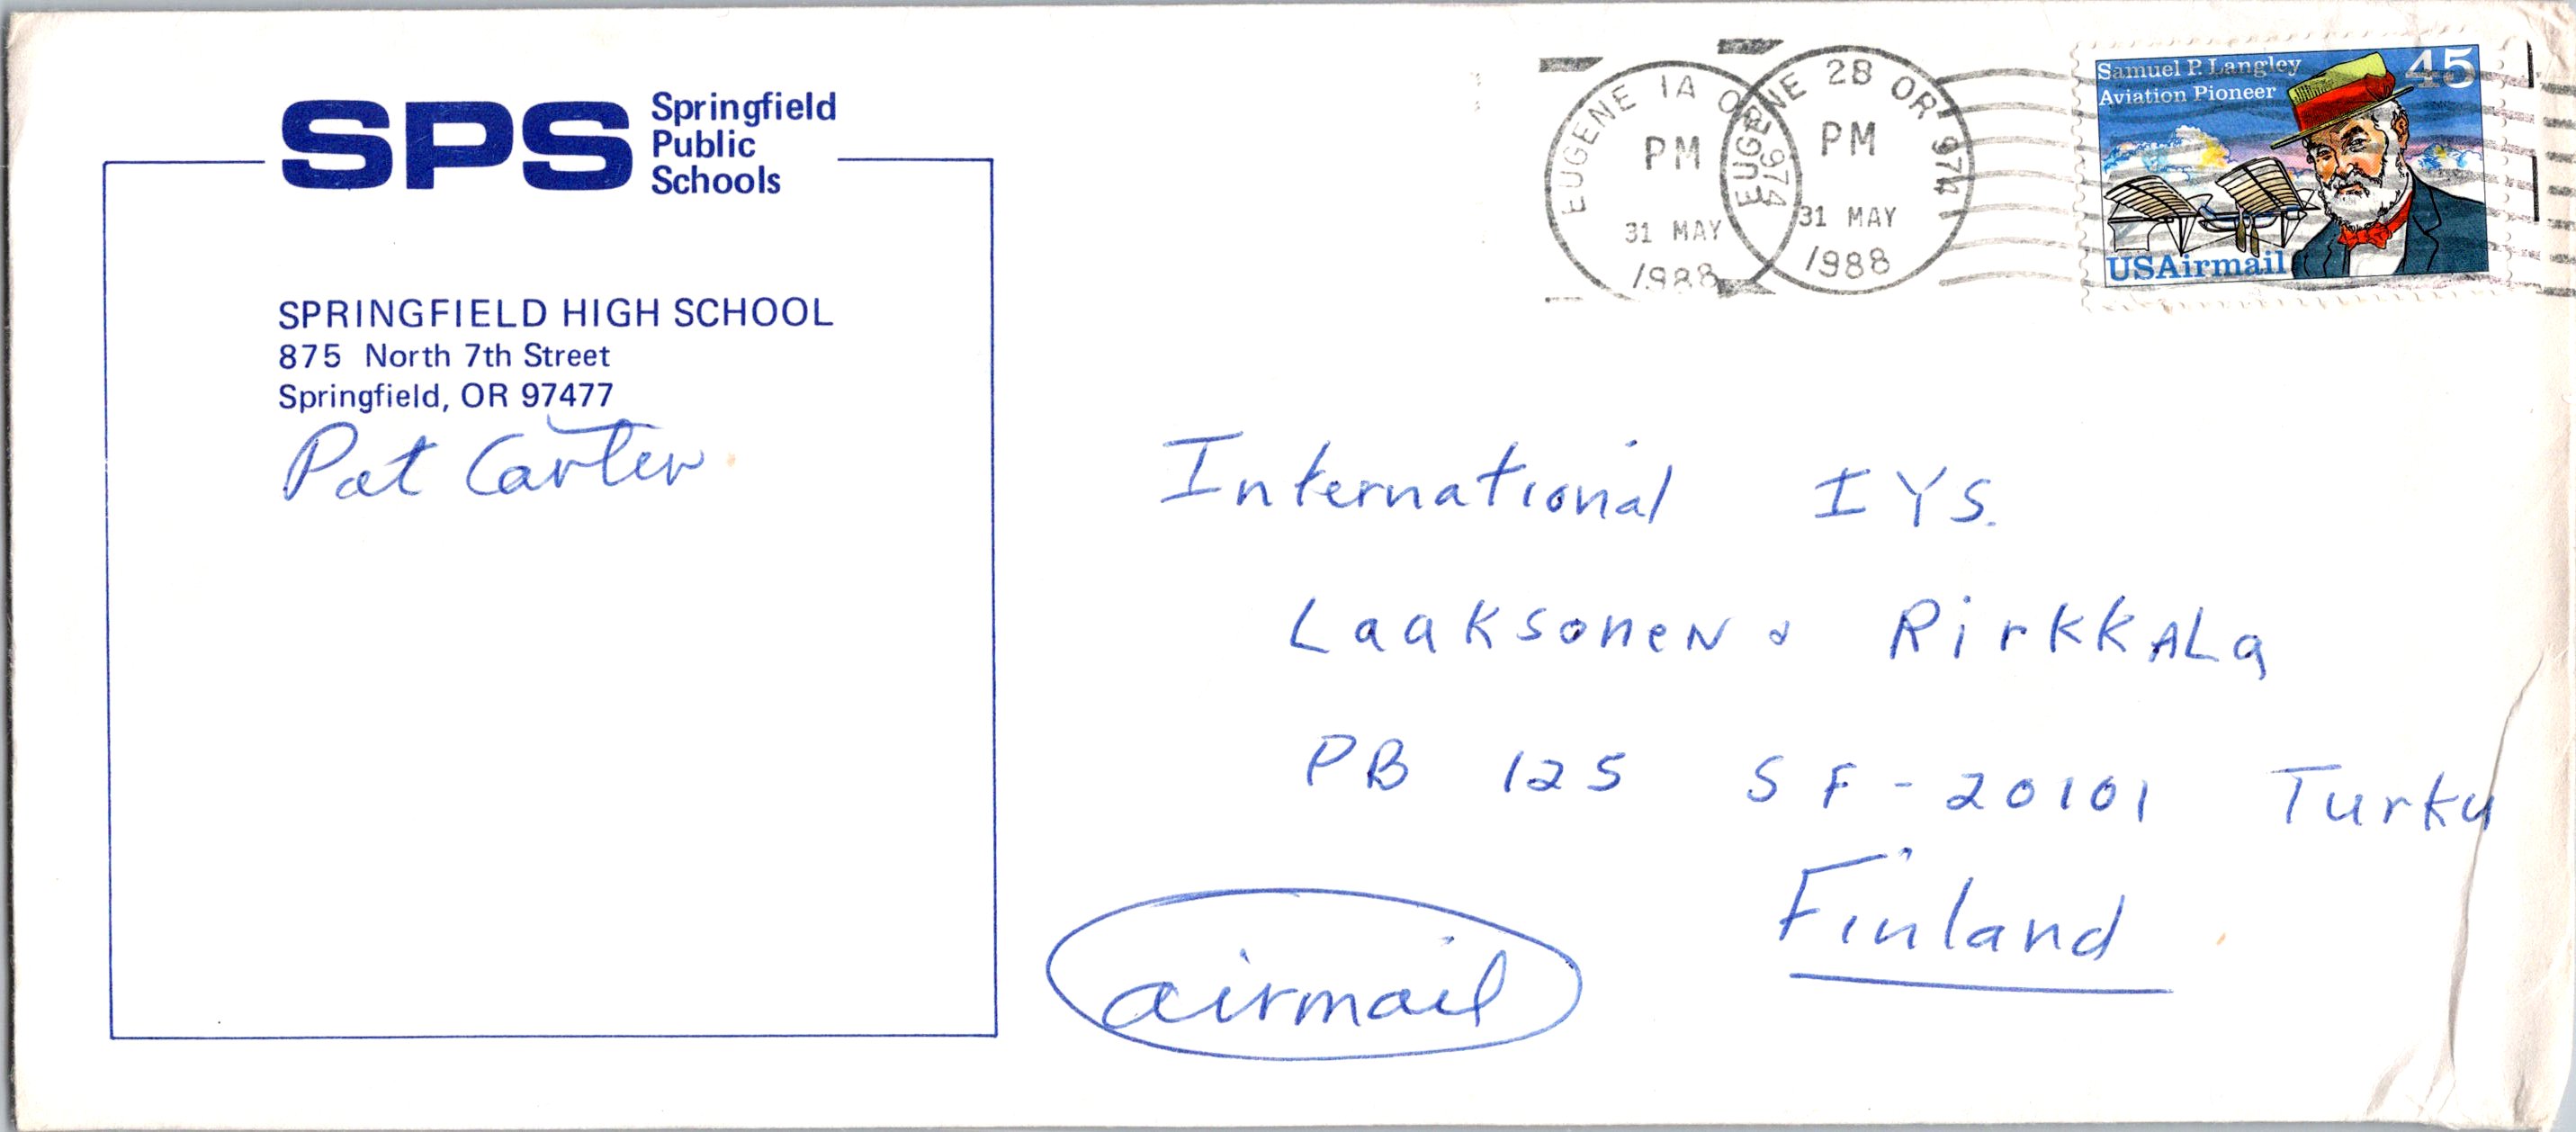 SPS Springfield
Public
Schools
SPRINGFIELD HIGH SCHOOL
875 North 7th Street
Springfield, OR 97477
Pat Carter
EUGENE 1A OR 974
PM
31 MAY
1988
EUGENE 2B OR 974
PM
31 MAY
1988
Samuel P. Langley
Aviation Pioneer
45
USAirmail
International IYS.
Laaksonen & Rirkkala
PB 125 SF-20101 Turku
Finland
airmail